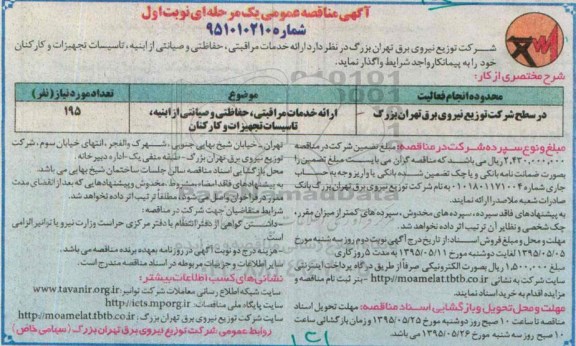 آگهی مناقصه عمومی یک مرحله ای نوبت اول
شماره ۹۵۱۰۱۰۲۱۰
شـرکت توزیع نیروی برق تهران بزرگ در نظر دارد ارائه خدمات مراقبتی، حفاظتی و صیانتی از ابنیه، تاسیسات تجهیزات و کارکنان
خود را به پیمانکار واجد شرایط واگذار نماید.
شرح مختصری از کار:
محدوده انجام فعالیت
موضوع
تعداد مورد نیاز (نفر)
در سطح شرکت توزیع نیروی برق تهران بزرگ
ارائه خدمات مراقبتی، حفاظتی و صیانتی از ابنیه،
تاسیسات تجهیزات و کارکنان
۱۹۵
مبلغ و نوع سپرده شرکت در مناقصه: مبلغ تضمین شرکت در مناقصه
۲,۴۳۰,۰۰۰,۰۰۰ ریال می باشد که مناقصه گران می بایست مبلغ تضمین را
بصورت ضمانت نامه بانکی و یا چک تضمین شده بانکی یا واریز وجه به حساب
جاری شماره ۰۱۰۱۸۰۱۱۷۱۰۰۴ به نام شرکت توزیع نیروی برق تهران بزرگ بانک
صادرات شعبه ملاصدرا ارائه نمایند.
به پیشنهادهای فاقد سپرده، سپرده های مخدوش، سپرده های کمتر از میزان مقرر،
چک شخصی و نظایر آن ترتیب اثر داده نخواهد شد.
مهلت و محل و مبلغ فروش اسناد: از تاریخ درج آگهی نوبت دوم روز سه شنبه مورخ
۱۳۹۵/۰۵/۰۵ لغایت دوشنبه مورخ ۱۳۹۵/۰۵/۱۱ به مدت ۵ روز کاری
مبلغ ۱,۵۰۰,۰۰۰ ریال بصورت الکترونیکی صرفاً از طریق درگاه پرداخت اینترنتی
سایت شرکت به نشانی http://moamelat.tbtb.co.ir ثبت نام مناقصه و
مزایده اقدام به خرید اسناد نمایند.
مهلت و محل تحویل و بازگشایی اسناد مناقصه: مهلت تحویل اسناد
مناقصه تا ساعت ۱۰ صبح روز دوشنبه مورخ ۱۳۹۵/۰۵/۲۵ و زمان بازگشائی ساعت
۱۰ صبح روز سه شنبه مورخ ۱۳۹۵/۰۵/۲۶ می باشد.
تهران، خیابان شیخ بهایی جنوبی، شهرک والفجر، انتهای خیابان سوم، شرکت
توزیع نیروی برق تهران بزرگ - طبقه منفی یک - اداره دبیرخانه
محل بازگشایی اسناد مناقصه سالن جلسات ساختمان شیخ بهایی می باشد.
به پیشنهادهای فاقد امضاء، مشروط، مخدوش و پیشنهادهایی که بعد از انقضای مدت
مقرر در فراخوان واصل می شود، مطلقاً ترتیب اثر داده نخواهد شد.
شرایط متقاضیان جهت شرکت در مناقصه:
- داشتن گواهی از دفتر انتظام یا دفتر مرکزی حراست وزارت نیرو یا توانیر الزامی
است.
- هزینه درج دو نوبت آگهی در روزنامه بعهده برنده مناقصه می باشد.
سایر اطلاعات و جزئیات مربوطه در اسناد مناقصه مندرج شده است.
نشانی های کسب اطلاعات بیشتر:
سایت شبکه اطلاع رسانی معاملات شرکت توانیر www.tavanir.org.ir
سایت پایگاه ملی مناقصات http//:icts.mporg.ir
سایت شرکت توزیع نیروی برق تهران بزرگ، http://moamelat.tbtb.co.ir
روابط عمومی شرکت توزیع نیروی برق تهران بزرگ (سهامی خاص)